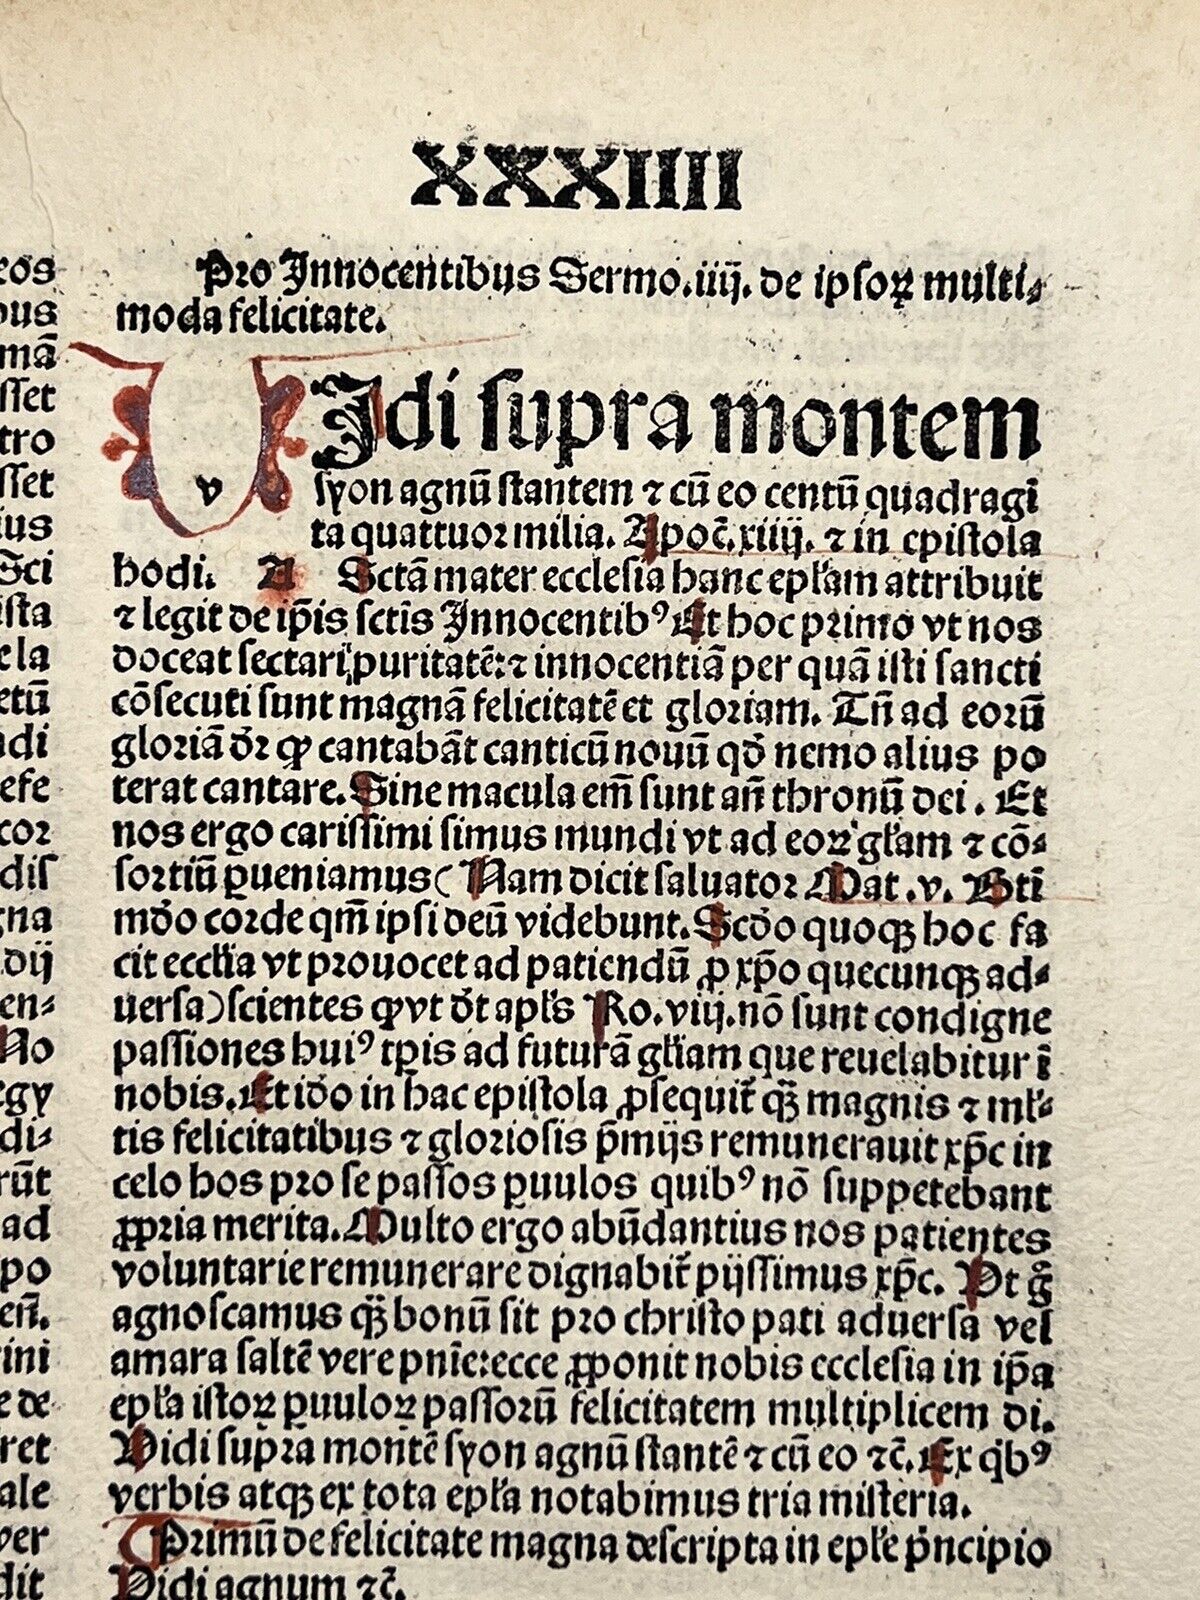 XXXIIII
Pro Innocentibus Sermo.iiij. de ipsoꝝ multi⸗
moda felicitate.
v Idi supra montem
syon agnū stantem ⁊ cū eo centū quadragi
ta quattuor milia. Apoc̄.xiiij. ⁊ in epistola
hodi. A Sctā mater ecclesia hanc epl̄am attribuit
⁊ legit de ip̄is sctīs Innocentibꝰ Et hoc primo vt nos
doceat sectari puritatē:⁊ innocentiā per quā isti sancti
cōsecuti sunt magnā felicitatē et gloriam. Tn̄ ad eorū
gloriā dr̄ ꝙ cantabāt canticū nouū qd̄ nemo alius po
terat cantare. Sine macula em̄ sunt an̄ thronū dei. Et
nos ergo carissimi simus mundi vt ad eoꝝ gl̄am ⁊ cō⸗
sortiū ꝑueniamus( Nam dicit saluator Mat.v. Bti̅
mūdo corde qm̄ ipsi deū videbunt. Scdo quoqꝫ hoc fa
cit eccl̄ia vt prouocet ad patiendū ꝓ xp̄o quecunqꝫ ad⸗
uersa)scientes ꝙ vt dt̄ apl̄s Ro.viij.nō sunt condigne
passiones huiꝰ tp̄is ad futurā gl̄iam que reuelabitur ī
nobis. Et ido in hac epistola ꝓsequit̄ qꝫ̄ magnis ⁊ ml̄⸗
tis felicitatibus ⁊ gloriosis p̄mijs remunerauit xp̄c in
celo hos pro se passos ꝑuulos quibꝰ nō suppetebant
ꝓpria merita. Multo ergo abūdantius nos patientes
voluntarie remunerare dignabit̄ pijssimus xp̄c. Vt g̊
agnoscamus qꝫ̄ bonū sit pro christo pati aduersa vel
amara saltē vere pnīe:ecce ꝓponit nobis ecclesia in ip̄a
epl̄a istoꝝ ꝑuuloꝝ passorū felicitatem multiplicem di.
Vidi supra montē syon agnū stantē ⁊ cū eo ⁊c̄. Ex qͥbꝰ
verbis atqꝫ ex tota epl̄a notabimus tria misteria.
Primū de felicitate magna descripta in epl̄e pͥncipio
Vidi agnum ⁊c̄.